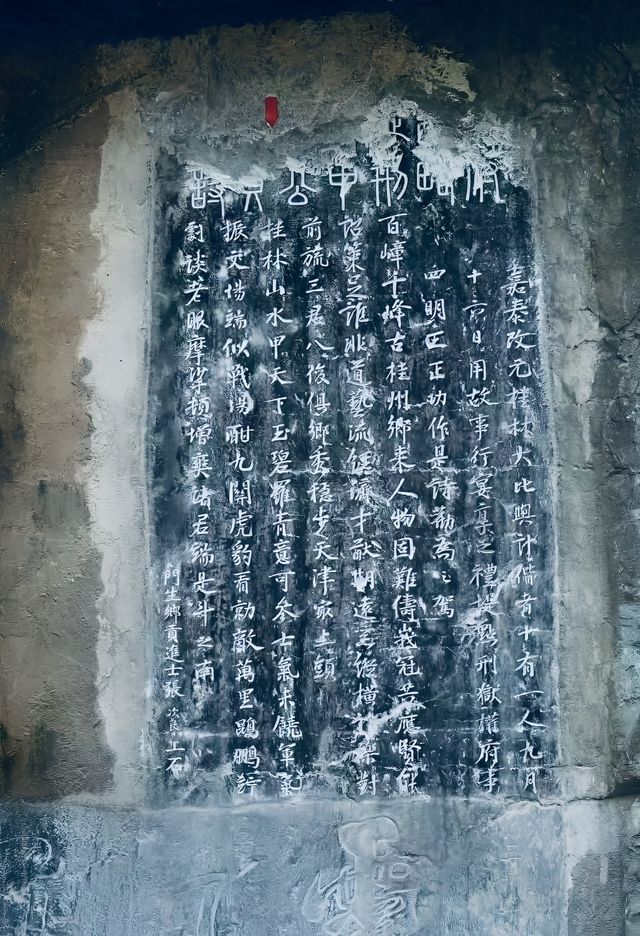 嘉泰改元桂林大比與計偕者十有一人九月
十六日用故事行宴享之禮提點刑獄權府事
四明王正功作是詩勸為之駕
百嶂千峰古桂州鄉來人物固難儔峨冠共應賢能
詔策足誰非道藝流經濟才猷期遠器縱橫禮樂對
前旒三君八俊俱鄉秀穩步天津最上頭
桂林山水甲天下玉碧羅青意可參士氣未饒軍氣
振文場端似戰場酣九關虎豹看勍敵萬里鵾鵬佇
劇談老眼摩挲頓增爽諸君端是斗之南
門生鄉貢進士張次良上石